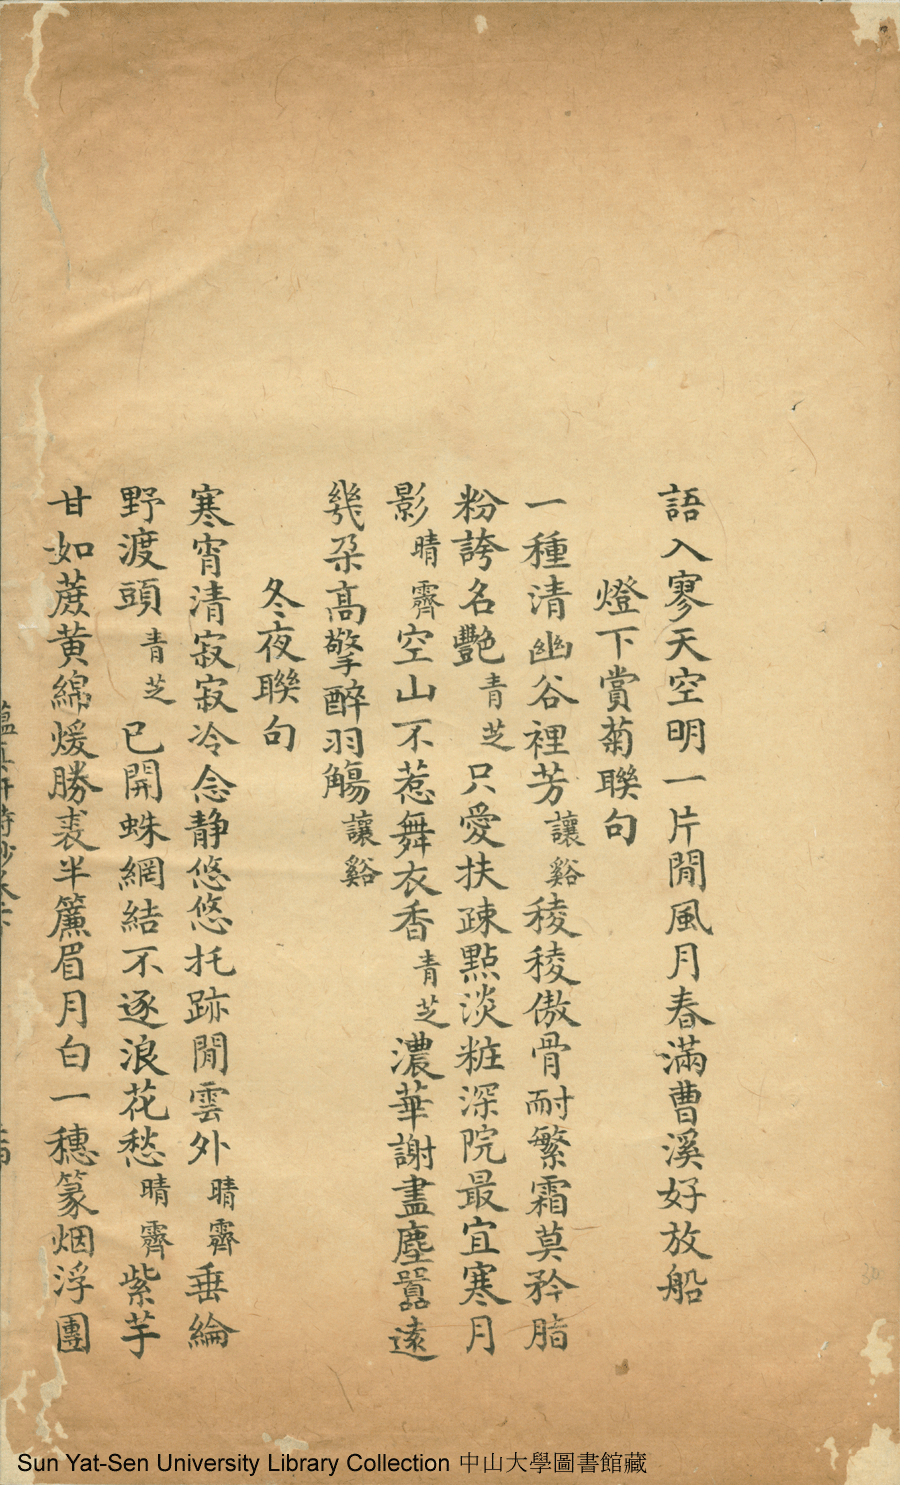 語入寥天空明一片閒風月春滿曹溪好放船
燈下賞菊聯句
一種清幽谷裡芳讓谿稜稜傲骨耐繁霜莫矜脂
粉誇名艷青芝只愛扶疎點淡粧深院最宜寒月
影晴霽空山不惹舞衣香青芝濃華謝盡塵囂遠
幾朶高擎醉羽觴讓谿
冬夜聯句
寒宵清寂寂冷念静悠悠托跡閒雲外晴霽垂綸
野渡頭青芝已開蛛網結不逐浪花愁晴霽紫芋
甘如蔗黄綿煖勝裘半簾眉月白一穗篆烟浮團
Sun Yat-Sen University Library Collection 中山大學圖書館藏